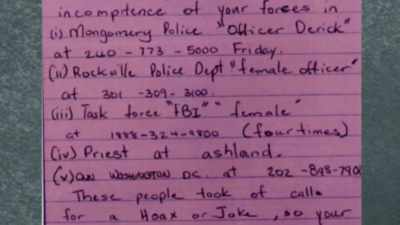 incompitence of your forces in
(i) Mongomery Police "Officer Derick"
at 240 - 773 - 5000 Friday.
(ii) Rockville Police Dept "female officer"
at 301 - 309 - 3100.
(iii) Task force "FBI" " female"
at 1888-324-9800 (four times)
(iv) Priest at ashland.
(v) WASHINGTON DC. at 202 -898-7900
These people took of calls
for a Hoax or Joke, so your